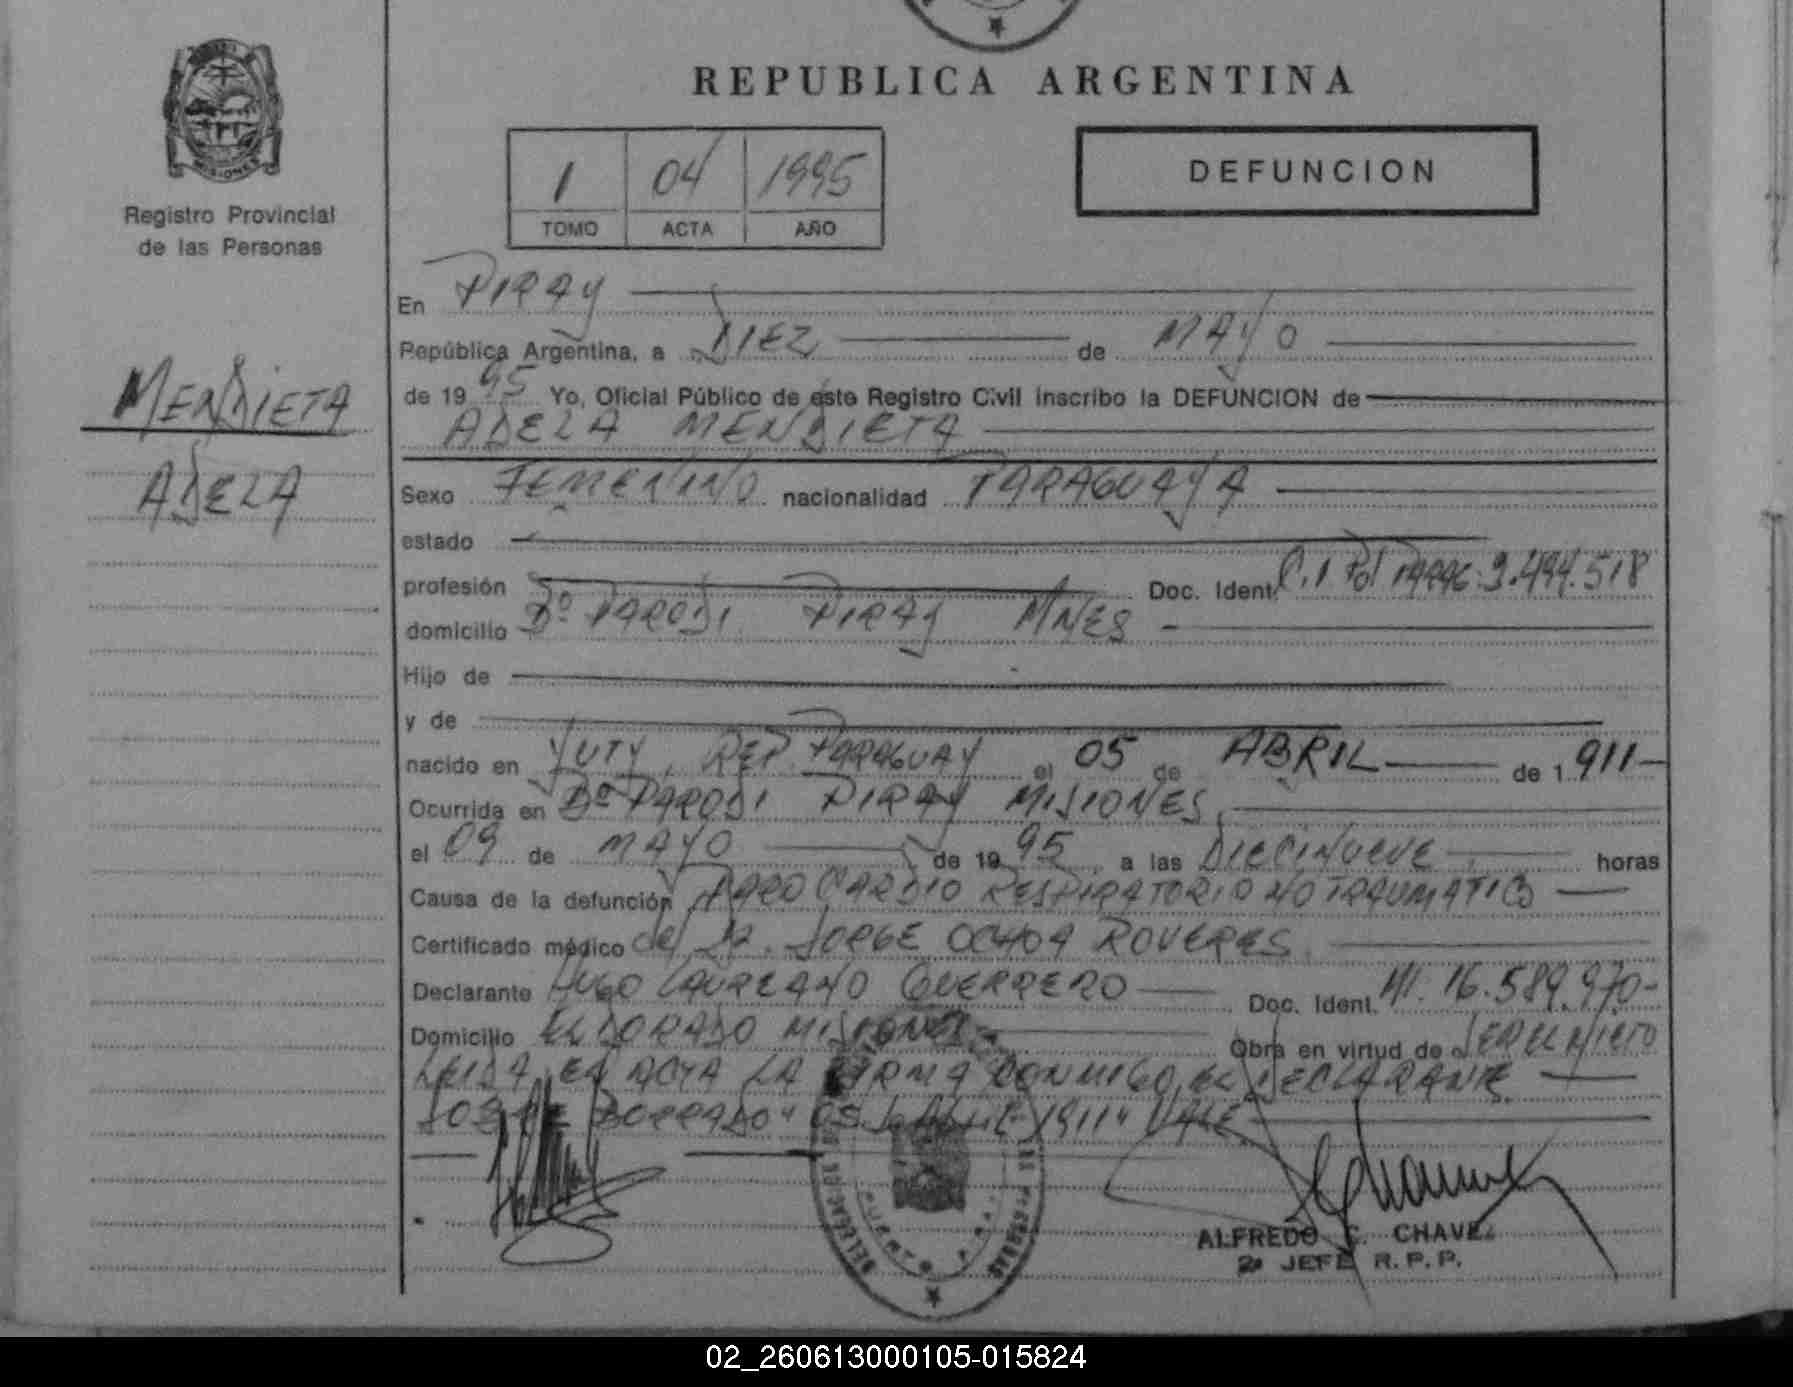 REPUBLICA ARGENTINA
MISIONES
Registro Provincial
de las Personas
1 04 1995
TOMO ACTA AÑO
DEFUNCION
MENDIETA
ADELA
En PIRAY
República Argentina, a DIEZ de MAYO
de 1995 Yo, Oficial Público de este Registro Civil inscribo la DEFUNCION de
ADELA MENDIETA
Sexo FEMENINO nacionalidad PARAGUAYA
estado
profesión Doc. Ident. C.I Pol PARAG. 9.494.518
domicilio Bº PARODI PIRAY MNES
Hijo de
y de
nacido en YUTY, REP. PARAGUAY el 05 de ABRIL de 1.911
Ocurrida en Bº PARODI PIRAY MISIONES
el 09 de MAYO de 1995 a las DIECINUEVE horas
Causa de la defunción PARO CARDIO RESPIRATORIO NO TRAUMATICO
Certificado médico del DR. JORGE OCHOA ROVERES
Declarante HUGO LAUREANO GUERRERO Doc. Ident. MI. 16.589.970-
Domicilio ELDORADO MISIONES Obra en virtud de SER EL NIETO
LEIDA EL ACTA LA FIRMA CONMIGO EL DECLARANTE
SOBRE BORRADO "05 ABRIL 1911" VALE
ALFREDO C. CHAVEZ
2º JEFE R.P.P.
02_260613000105-015824